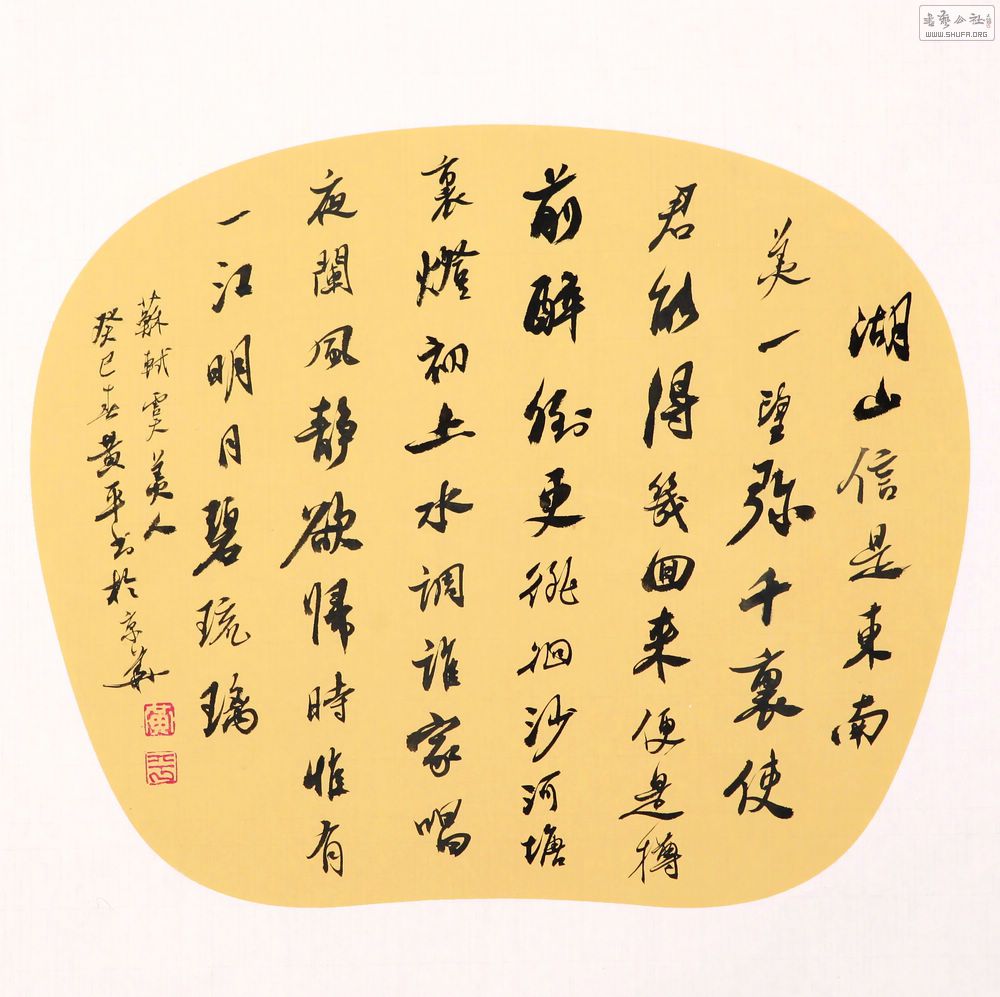 湖山信是東南
美一望弥千裏使
君能得幾回来便是樽
前醉倒更徘徊沙河塘
裏燈初上水調誰家唱
夜闌風静欲歸時惟有
一江明月碧琉璃
蘇軾虞美人
癸巳春黄平書於京華
黄
平
書藝公社
WWW.SHUFA.ORG